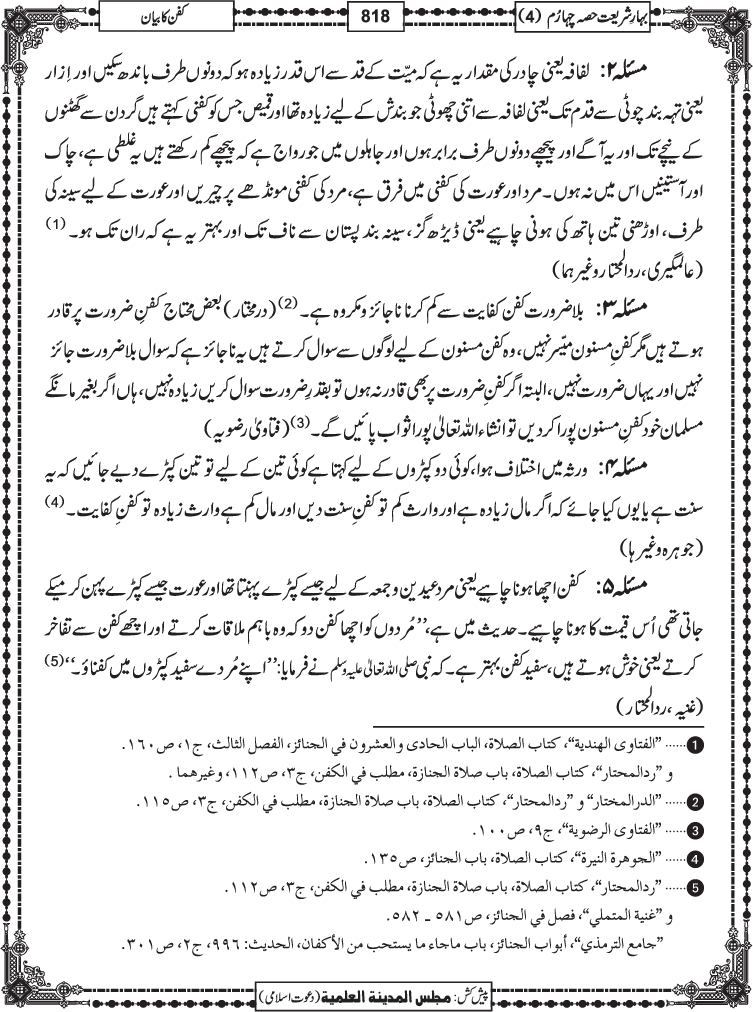 بہارِ شریعت حصہ چہارم (4)
818
کفن کا بیان
مسئلہ ۲: لفافہ یعنی چادر کی مقدار یہ ہے کہ میّت کے قد سے اس قدر زیادہ ہو کہ دونوں طرف باندھ سکیں اور اِزار
یعنی تہہ بند چوٹی سے قدم تک یعنی لفافہ سے اتنی چھوٹی جو بندش کے لیے زیادہ تھا اور قمیص جس کو کفنی کہتے ہیں گردن سے گھٹنوں
کے نیچے تک اور یہ آگے اور پیچھے دونوں طرف برابر ہوں اور جاہلوں میں جو رواج ہے کہ پیچھے کم رکھتے ہیں یہ غلطی ہے، چاک
اور آستینیں اس میں نہ ہوں۔ مرد اور عورت کی کفنی میں فرق ہے، مرد کی کفنی مونڈھے پر چیریں اور عورت کے لیے سینہ کی
طرف، اوڑھنی تین ہاتھ کی ہونی چاہیے یعنی ڈیڑھ گز، سینہ بند پستان سے ناف تک اور بہتر یہ ہے کہ ران تک ہو۔ (1)
(عالمگیری، ردالمحتار وغیرہما)
مسئلہ ۳: بلاضرورت کفن کفایت سے کم کرنا ناجائز و مکروہ ہے۔ (2) (درمختار) بعض محتاج کفنِ ضرورت پر قادر
ہوتے ہیں مگر کفنِ مسنون میسّر نہیں، وہ کفن مسنون کے لیے لوگوں سے سوال کرتے ہیں یہ ناجائز ہے کہ سوال بلاضرورت جائز
نہیں اور یہاں ضرورت نہیں، البتہ اگر کفنِ ضرورت پر بھی قادر نہ ہوں تو بقدرِ ضرورت سوال کریں زیادہ نہیں، ہاں اگر بغیر مانگے
مسلمان خود کفنِ مسنون پورا کردیں تو انشاء اللہ تعالیٰ پورا ثواب پائیں گے۔ (3) (فتاویٰ رضویہ)
مسئلہ ۴: ورثہ میں اختلاف ہوا، کوئی دو کپڑوں کے لیے کہتا ہے کوئی تین کے لیے تو تین کپڑے دیے جائیں کہ یہ
سنت ہے یا یوں کیا جائے کہ اگر مال زیادہ ہے اور وارث کم تو کفنِ سنت دیں اور مال کم ہے وارث زیادہ تو کفنِ کفایت۔ (4)
(جوہرہ وغیرہا)
مسئلہ ۵: کفن اچھا ہونا چاہیے یعنی مرد عیدین و جمعہ کے لیے جیسے کپڑے پہنتا تھا اور عورت جیسے کپڑے پہن کر میکے
جاتی تھی اُس قیمت کا ہونا چاہیے۔ حدیث میں ہے، ’’مُردوں کو اچھا کفن دو کہ وہ باہم ملاقات کرتے اور اچھے کفن سے تفاخر
کرتے یعنی خوش ہوتے ہیں، سفید کفن بہتر ہے۔ کہ نبی صلی اللہ تعالیٰ علیہ وسلم نے فرمایا: ’’اپنے مُردے سفید کپڑوں میں کفناؤ۔‘‘ (5)
(غنیہ، ردالمحتار)
1 ...... ’’الفتاوى الهندية‘‘، كتاب الصلاة، الباب الحادى والعشرون في الجنائز، الفصل الثالث، ج١، ص١٦٠.
و ’’ردالمحتار‘‘، كتاب الصلاة، باب صلاة الجنازة، مطلب في الكفن، ج٣، ص١١٢، وغيرهما .
2 ...... ’’الدرالمختار‘‘ و ’’ردالمحتار‘‘، كتاب الصلاة، باب صلاة الجنازة، مطلب في الكفن، ج٣، ص١١٥.
3 ...... ’’الفتاوى الرضوية‘‘، ج٩، ص١٠٠.
4 ...... ’’الجوهرة النيرة‘‘، كتاب الصلاة، باب الجنائز، ص١٣٥.
5 ...... ’’ردالمحتار‘‘، كتاب الصلاة، باب صلاة الجنازة، مطلب في الكفن، ج٣، ص١١٢.
و ’’غنية المتملي‘‘، فصل في الجنائز، ص٥٨١ ـ ٥٨٢.
’’جامع الترمذي‘‘، أبواب الجنائز، باب ماجاء ما يستحب من الأكفان، الحديث: ٩٩٦، ج٢، ص٣٠١.
پیش کش: مجلس المدينة العلمية (دعوت اسلامی)